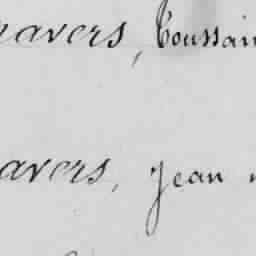 ravers, Toussain
avers, Jean